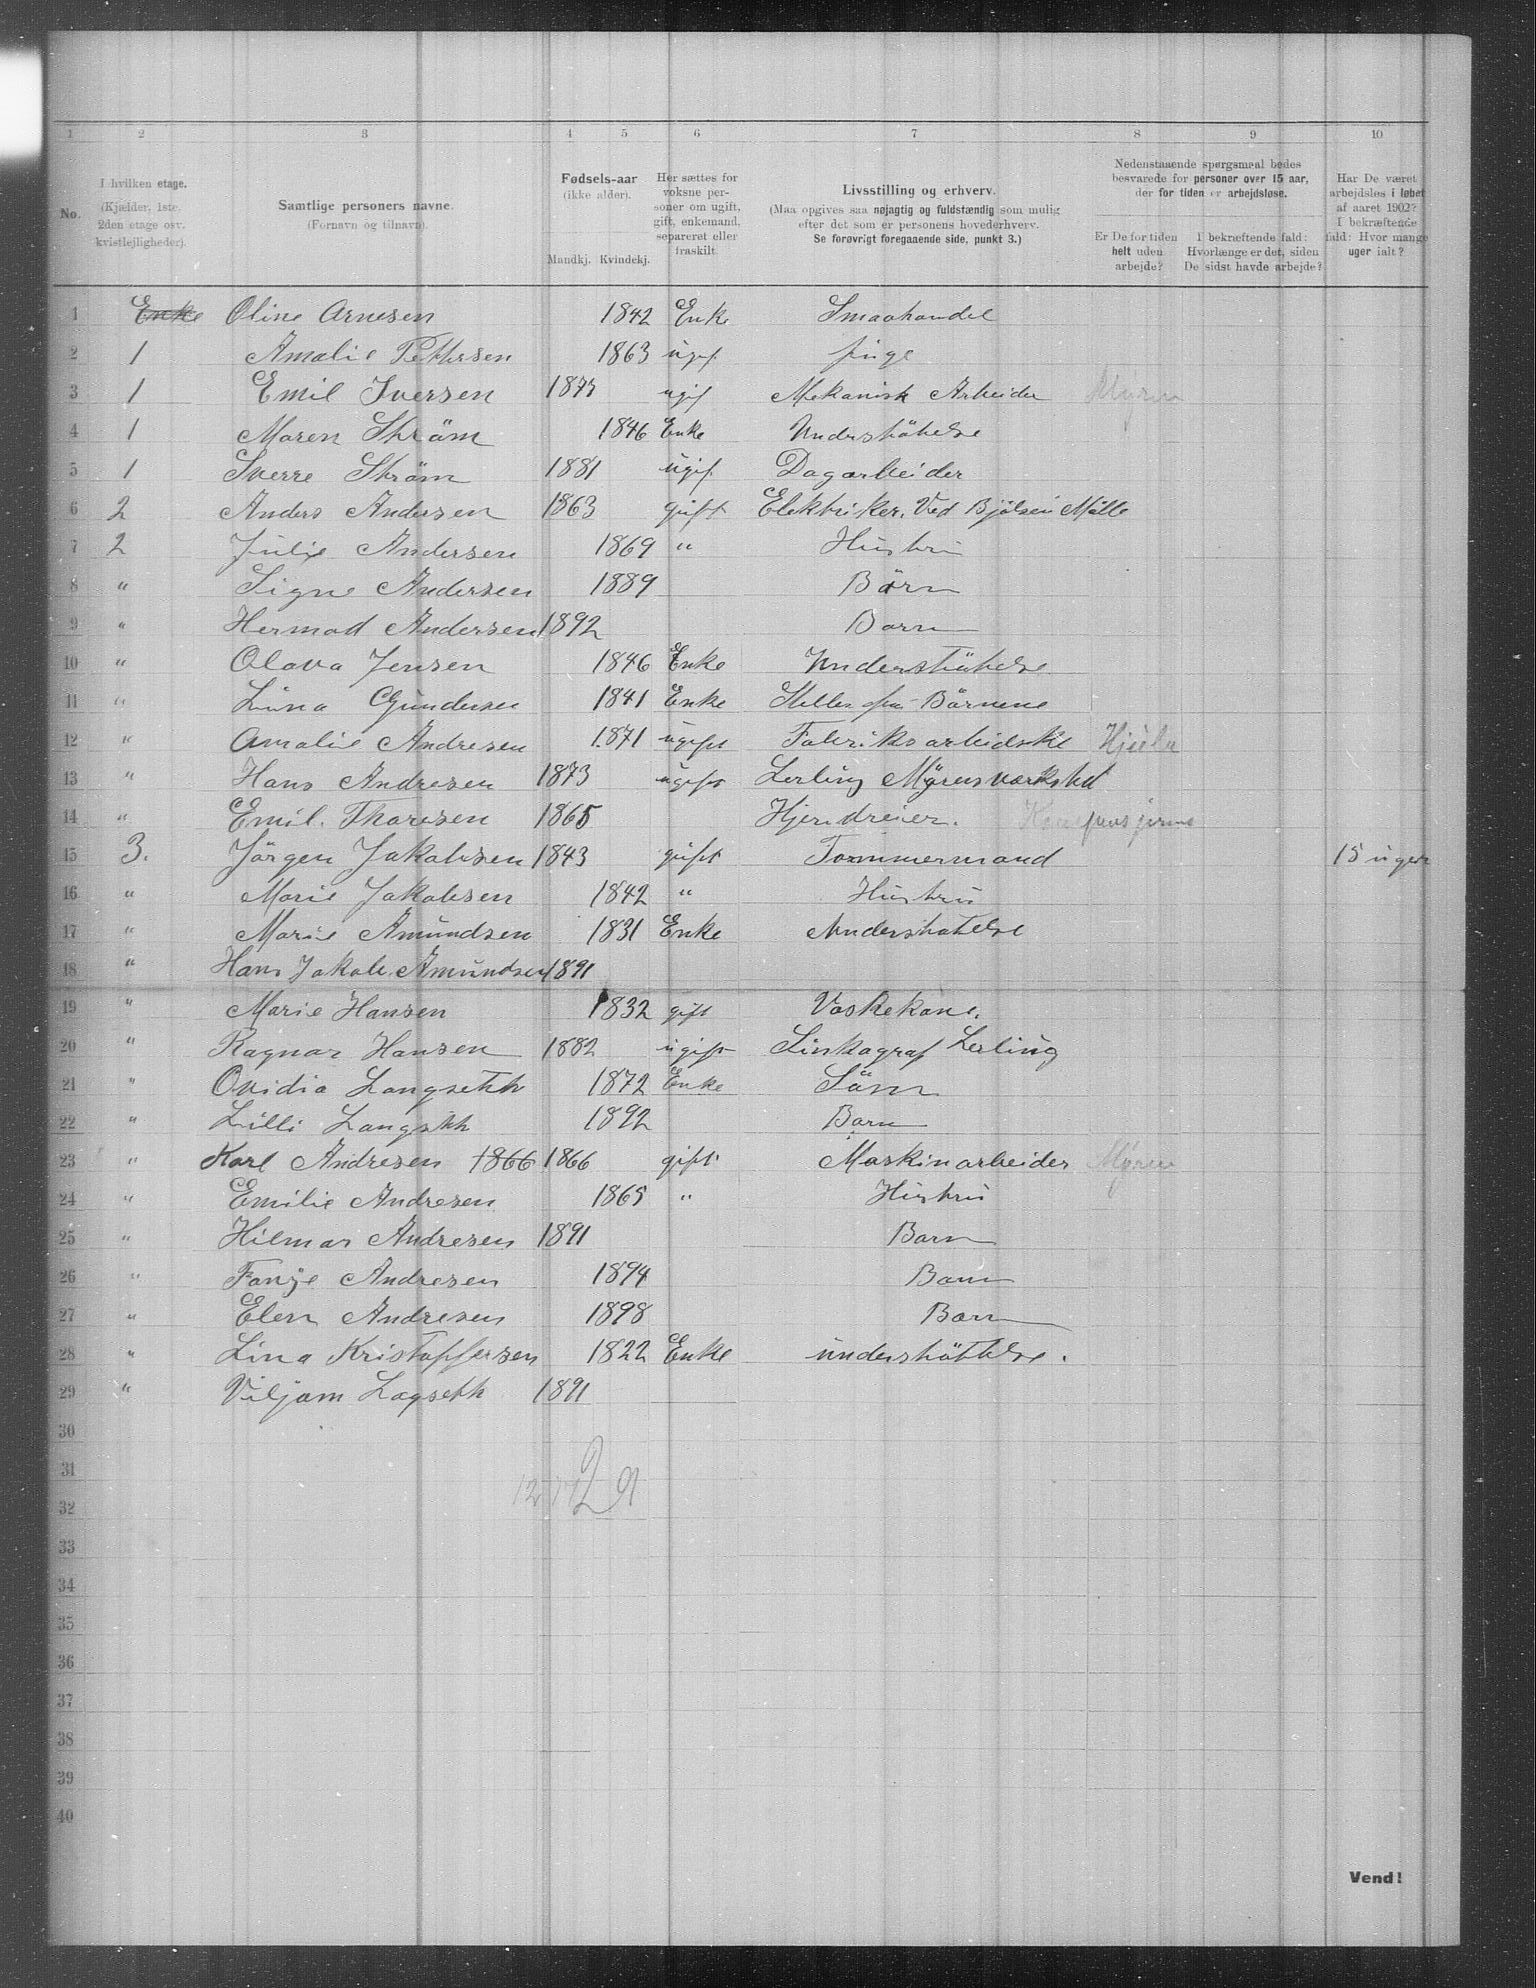 1 2 3 4 5 6 7 8 9 10
No.
I hvilken etage.
(Kjælder, 1ste,
2den etage osv.
kvistlejligheder).
Samtlige personers navne.
(Fornavn og tilnavn).
Fødsels-aar
(ikke alder).
Mandkj. Kvindekj.
Her sættes for
voksne per-
soner om ugift,
gift, enkemand,
separeret eller
fraskilt.
Livsstilling og erhverv.
(Maa opgives saa nøjagtig og fuldstændig som mulig
efter det som er personens hovederhverv.
Se forøvrigt foregaaende side, punkt 3.)
Nedenstaaende spørgsmaal bedes
besvarede for personer over 15 aar,
der for tiden er arbejdsløse.
Er De for tiden
helt uden
arbejde?
I bekræftende fald:
Hvorlænge er det, siden
De sidst havde arbejde?
Har De været
arbejdsløs i løbet
af aaret 1902?
I bekræftende
fald: Hvor mange
uger ialt?
1 Enke Oline Arnesen 1842 Enke Smaahandel
2 1 Amalie Pettersen 1863 ugif. pige
3 1 Emil Iversen 1877 ugif Mekanisk Arbeider Myren
4 1 Maren Ström 1846 Enke Understötelse
5 1 Sverre Ström 1881 ugif. Dagarbeider
6 2 Anders Andersen 1863 gift Elektriker. Ved Bjölsen Mölle
7 2 Julie Andersen 1869 " Hustru
8 " Signe Andersen 1889 Börn
9 " Hermod Andersen 1892 Barn
10 " Olava Jensen 1846 Enke Understötelse
11 " Lina Gundersen 1841 Enke Steller for Börnene
12 " Amalie Andresen 1871 ugift Fabriksarbeidske Hjula
13 " Hans Andresen 1873 ugift Lerling Myrensværksted
14 " Emil. Thoresen 1865 Hjendreier.
15 3. Jörgen Jakobsen 1843 gift Tommermand 15 uger
16 " Marie Jakobsen 1842 " Hustru
17 " Marie Amundsen 1831 Enke Understötelse
18 " Hans Jakob Amundsen 1891
19 " Marie Hansen 1832 gift Vaskekone.
20 " Ragnar Hansen 1882 ugift Sinkograf Lerling
21 " Ovidia Langseth 1872 Enke Söm
22 " Lilli Langseth 1892 Barn
23 " Karl Andresen 1866 1866 gift Maskinarbeider Myren
24 " Emilie Andresen 1865 " Hustru
25 " Hilmar Andresen 1891 Barn
26 " Fanje Andresen 1894 Barn
27 " Elen Andresen 1898 Barn
28 " Lina Kristoffersen 1822 Enke understöttelse.
29 " Viljam Lagseth 1891
30
31
12 17 29
32
33
34
35
36
37
38
39
40
Vend!